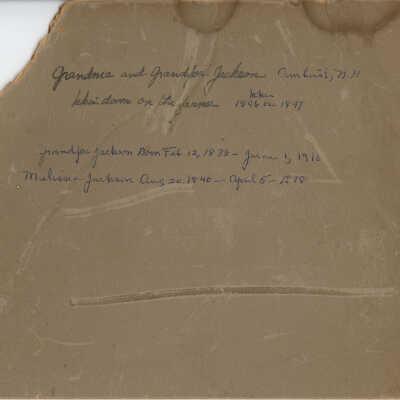 Grandma and Grandpa Jackson Amhurst, N.H
down on the farm 1896 or 1897
Grandpa Jackson Born Feb 12, 1838 - June 1, 1910
Melissa Jackson Aug 20, 1840 - April 5 -